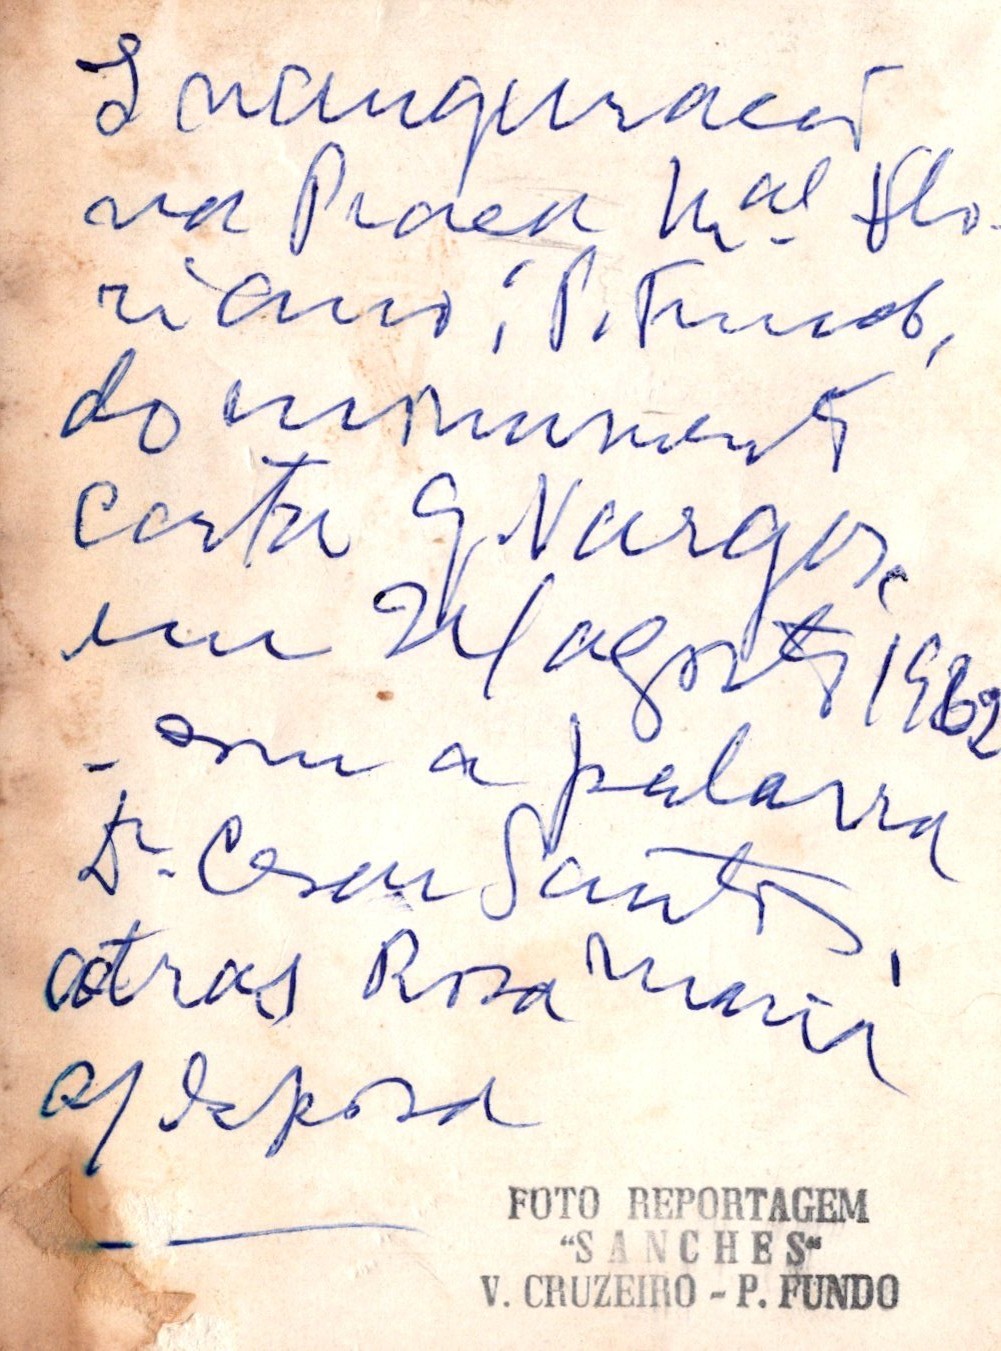 Inauguracão
na Praca Mal. Flo-
riano, P. Fundo,
do monumento
carta G. Vargas,
em 24/agosto/1962
- com a palavra
Dr. Cesar Santos,
atras Rosa Maria
esposa
FOTO REPORTAGEM
"SANCHES"
V. CRUZEIRO - P. FUNDO